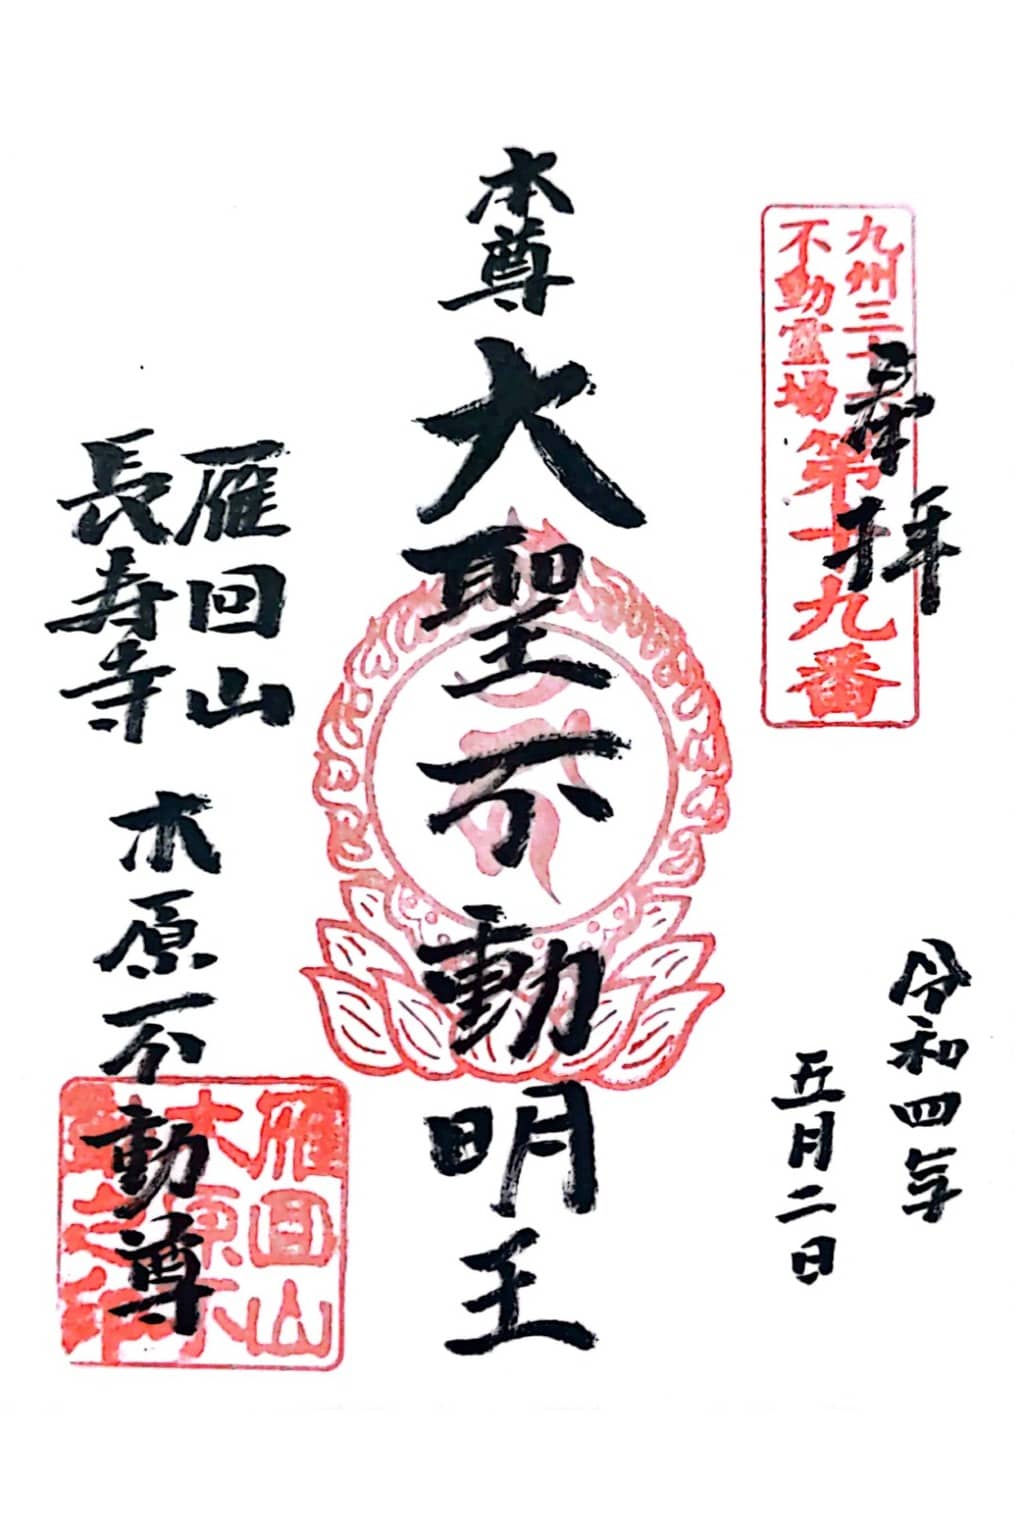 九州三十六
不動霊場
第十九番
奉拝
令和四年
五月二日
本尊
大聖不動明王
雁回山
長寿寺
木原不動尊
雁回山
木原不
動之印